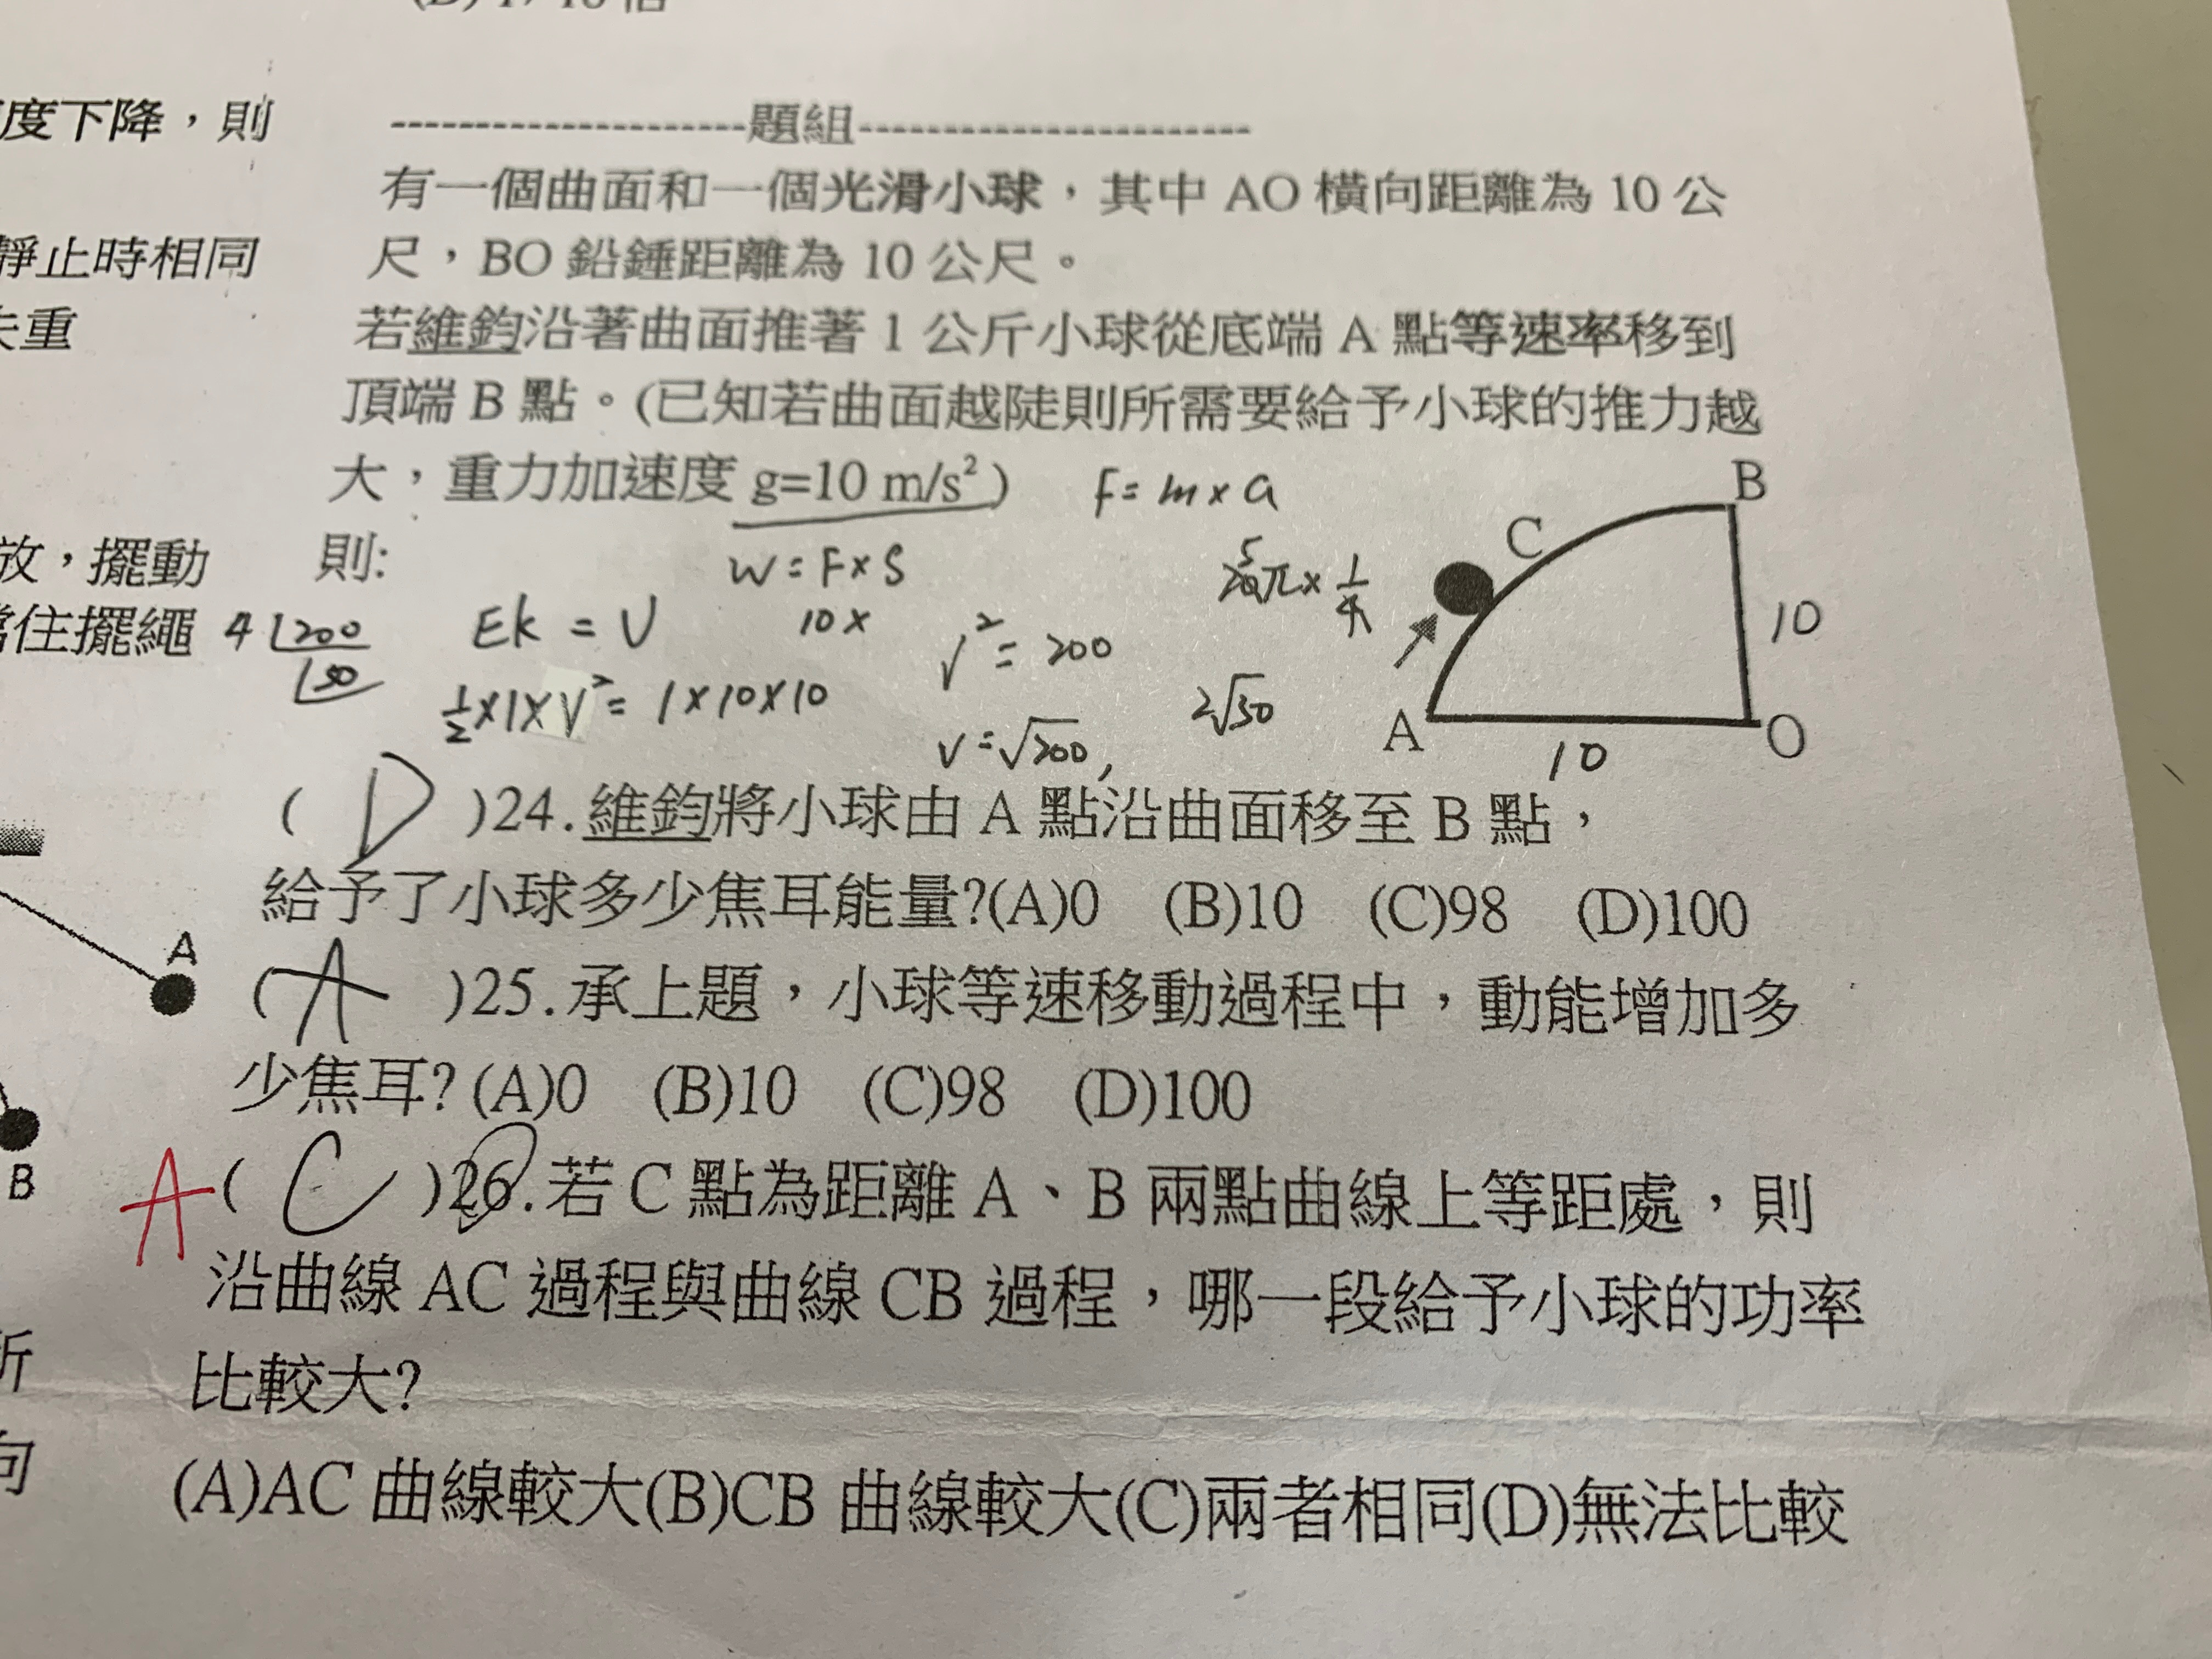 度下降，則
靜止時相同
失重
放，擺動
擋住擺繩
A
B
所
向
--------------------題組----------------------
有一個曲面和一個光滑小球，其中 AO 橫向距離為 10 公
尺，BO 鉛錘距離為 10 公尺。
若維鈞沿著曲面推著 1 公斤小球從底端 A 點等速率移到
頂端 B 點。(已知若曲面越陡則所需要給予小球的推力越
大，重力加速度 g=10 m/s²)
F = m × a
則:
W = F × S
10 ×
Ek = U
½ × 1 × V² = 1 × 10 × 10
V² = 200
V = √200,
2√50
π × 1/4
4 200
50
B
C
10
A
O
10
( D )24.維鈞將小球由 A 點沿曲面移至 B 點，
給予了小球多少焦耳能量?(A)0 (B)10 (C)98 (D)100
( A )25.承上題，小球等速移動過程中，動能增加多
少焦耳?(A)0 (B)10 (C)98 (D)100
A ( C )26.若 C 點為距離 A、B 兩點曲線上等距處，則
沿曲線 AC 過程與曲線 CB 過程，哪一段給予小球的功率
比較大?
(A)AC 曲線較大(B)CB 曲線較大(C)兩者相同(D)無法比較